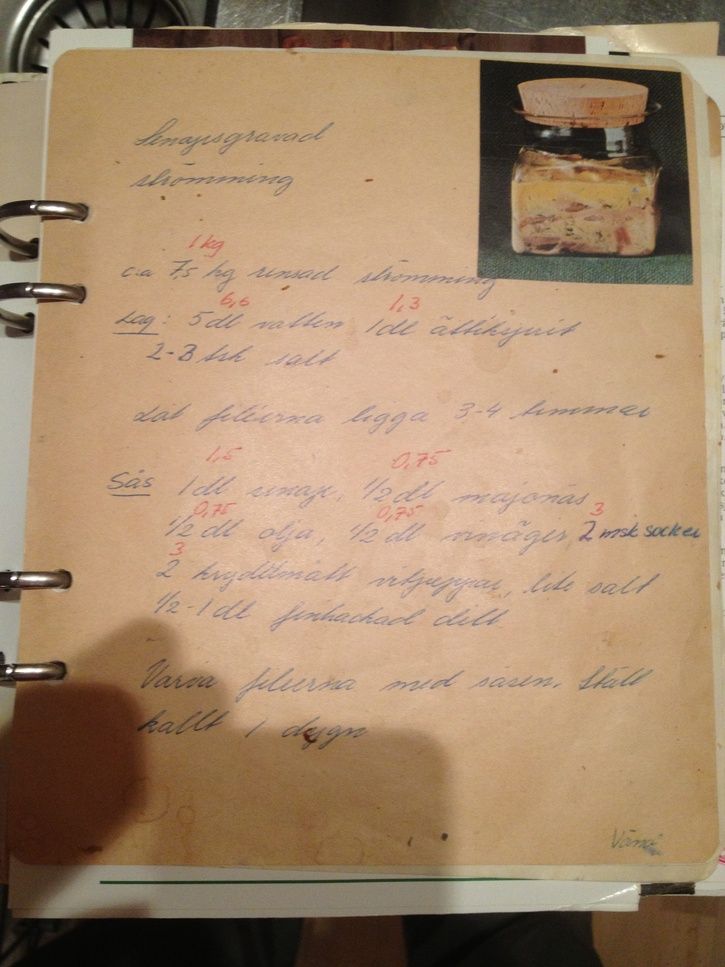 Senapsgravad
strömming
1 kg
c:a 7,5 hg rensad strömming
6,6 1,3
Lag: 5 dl vatten 1 dl ättiksprit
2-3 tsk salt
Låt filéerna ligga 3-4 timmar
1,5 0,75
Sås 1 dl senap, 1/2 dl majonäs
0,75 0,75 3
1/2 dl olja, 1/2 dl vinäger, 2 msk socker
3
2 kryddmått vitpeppar, lite salt
1/2-1 dl finhackad dill
Varva filéerna med såsen. Ställ
kallt 1 dygn